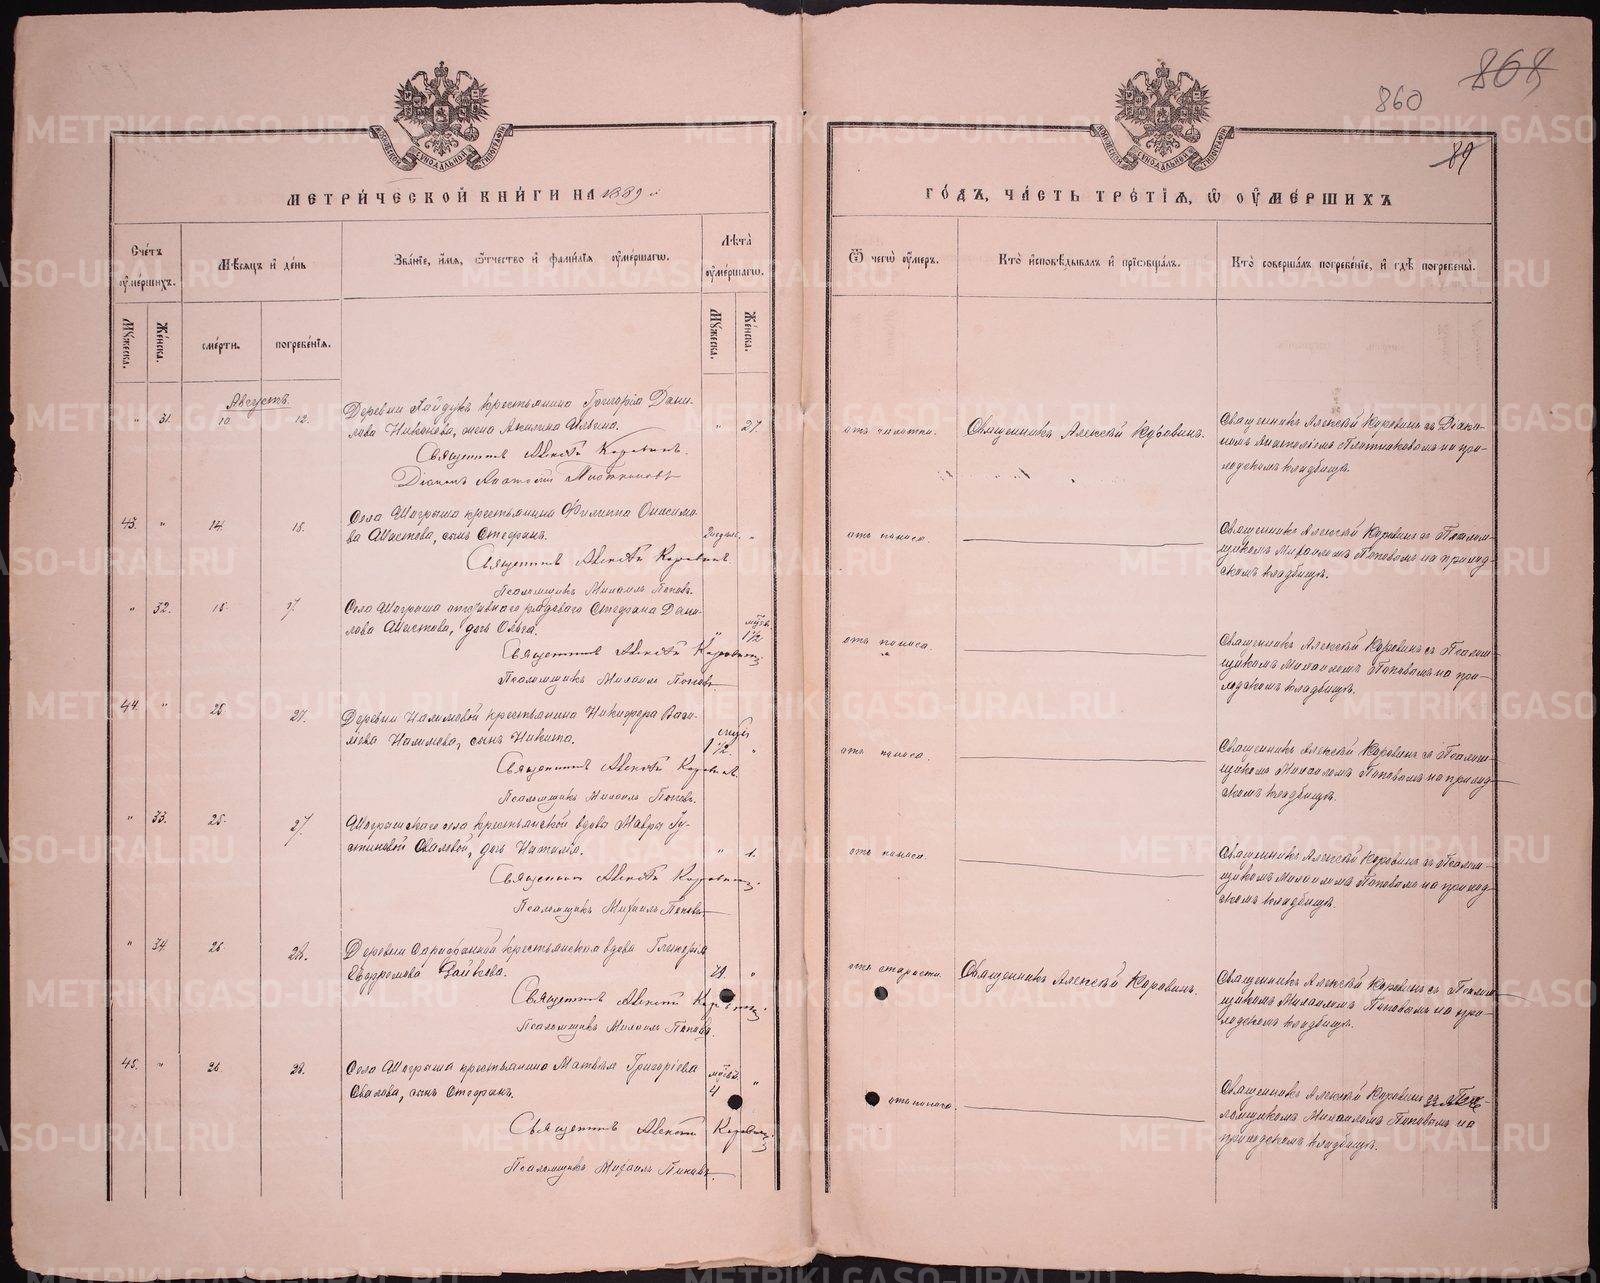 868
860
89
МОСКОВСКОЙ СУНОДАЛЬНОЙ ТИПОГРАФІИ
МОСКОВСКОЙ СУНОДАЛЬНОЙ ТИПОГРАФІИ
МЕТРИ́ЧЕСКОЙ КНИ́ГИ НА 1889 й
ГО́ДЪ, ЧА́СТЬ ТРЕ́ТІѦ, Ѡ ОУМЕ́РШИХЪ
Сче́тъ оуме́ршихъ.
Мѣ́сяцъ и де́нь
Зва́ніе, и́мя, о́тчество и фами́лія оуме́ршагѡ.
Лѣ́та оуме́ршагѡ.
Ѿ чегѡ̀ оу́меръ.
Кто̀ и҆сповѣ́дывалъ и҆ прїѡбща́лъ.
Кто̀ соверша́лъ погребе́ніе, и҆ гдѣ̀ погребены̀.
Мꙋ́жеска.
Же́нска.
сме́рти.
погребе́нія.
Мꙋ́жеска.
Же́нска.
Августъ.
" 31. 10. 12. Деревни Гайдукъ крестьянина Григорія Дани-
лова Никонова, жена Акилина Ильина. " 27.
Священникъ Алексѣй Коровинъ.
Діаконъ Анатолій Плотниковъ
отъ чахотки. Священникъ Алексѣй Коровинъ.
Священникъ Алексѣй Коровинъ съ Діако-
номъ Анатоліемъ Плотниковымъ на при-
ходскомъ кладбищѣ.
43. " 14. 15. Села Шогрыша крестьянина Филиппа Онисимо-
ва, сынъ Стефанъ. 2 недѣль. "
Священникъ Алексѣй Коровинъ.
Псаломщикъ Михаилъ Поповъ.
отъ поноса.
Священникъ Алексѣй Коровинъ съ Псалом-
щикомъ Михаиломъ Поповымъ на приход-
скомъ кладбищѣ.
" 32. 15. 17. Села Шогрыша рядоваго Стефана Дани-
лова, дочь Ольга. " 1½
Священникъ Алексѣй Коровинъ
Псаломщикъ Михаилъ Поповъ
отъ поноса.
Священникъ Алексѣй Коровинъ съ Псалом-
щикомъ Михаиломъ Поповымъ на при-
ходскомъ кладбищѣ.
44. " 25 27. Деревни Налимовой крестьянина Никифора Васи-
льева Налимова, сынъ Никита. 1½. "
Священникъ Алексѣй Коровинъ.
Псаломщикъ Михаилъ Поповъ.
отъ поноса.
Священникъ Алексѣй Коровинъ съ Псалом-
щикомъ Михаиломъ Поповымъ на приход-
скомъ кладбищѣ.
" 33. 25. 27. Шогрышскаго села крестьянской вдовы Мавры Іу-
стиновой Сваловой, дочь Наталія. " 1.
Священникъ Алексѣй Коровинъ.
Псаломщикъ Михаилъ Поповъ
отъ поноса.
Священникъ Алексѣй Коровинъ съ Псалом-
щикомъ Михаиломъ Поповымъ на приход-
скомъ кладбищѣ.
" 34 26. 28. Деревни крестьянская вдова Гликерія
Евдокимова Зайкова. 71. "
Священникъ Алексѣй Коровинъ.
Псаломщикъ Михаилъ Поповъ.
отъ старости. Священникъ Алексѣй Коровинъ.
Священникъ Алексѣй Коровинъ съ Псалом-
щикомъ Михаиломъ Поповымъ на при-
ходскомъ кладбищѣ.
45. " 26. 28. Села Шогрыша крестьянина Матвѣя Григоріева
Свалова, сынъ Стефанъ. 4 "
Священникъ Алексѣй Коровинъ
Псаломщикъ Михаилъ Поповъ
отъ поноса.
Священникъ Алексѣй Коровинъ съ Пса-
ломщикомъ Михаиломъ Поповымъ на
приходскомъ кладбищѣ.
METRIKI.GASO-URAL.RU